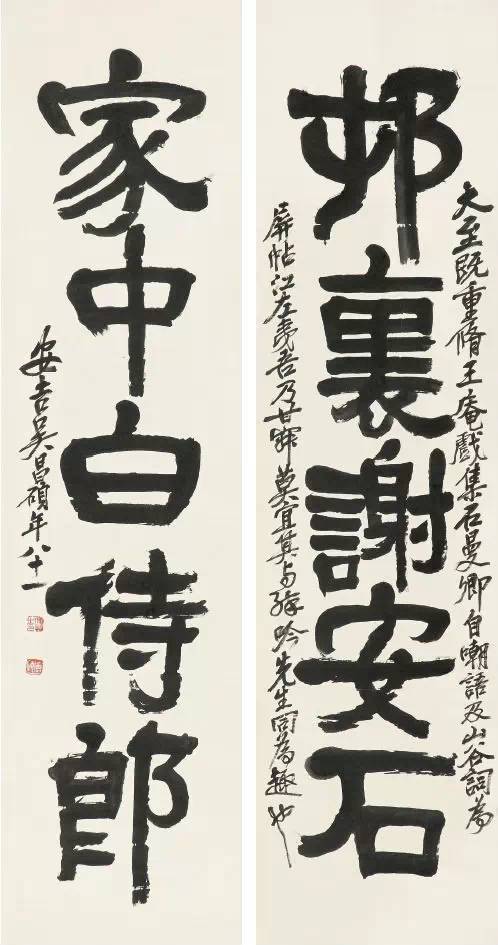 大至既重脩王庵戲集石曼卿自嘲語及山谷詞為
邨裏謝安石
屏帖江左夷吾乃莫宜其与吟先生同為趣也
家中白侍郎
安吉吴昌碩年八十一